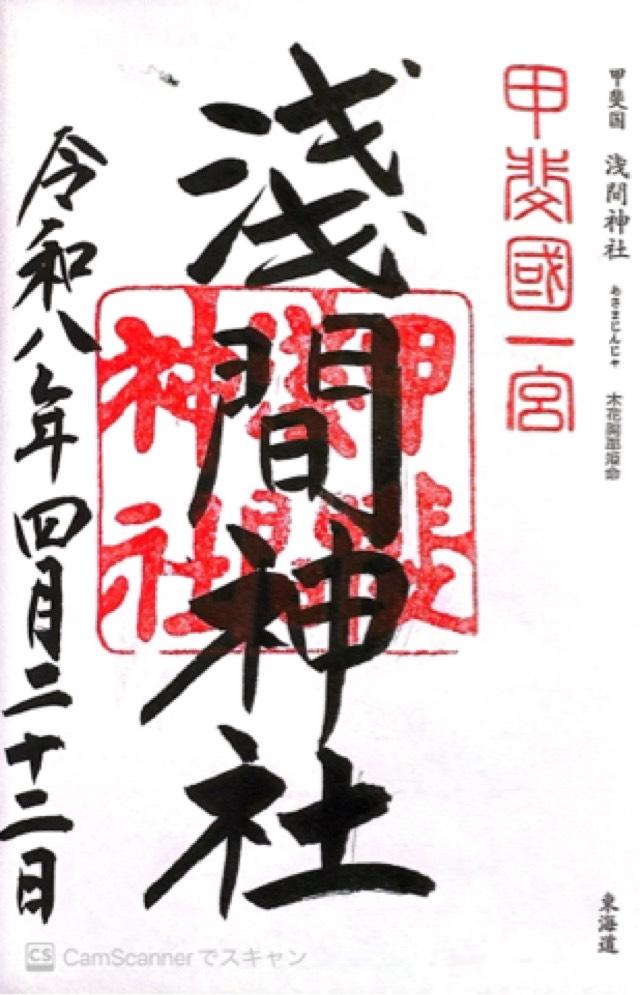 甲斐国 浅間神社 あさまじんじゃ 木花開耶姫命
甲斐國一宮
淺間神社
甲斐
淺間
神社
令和八年四月二十二日
東海道
CS CamScanner でスキャン